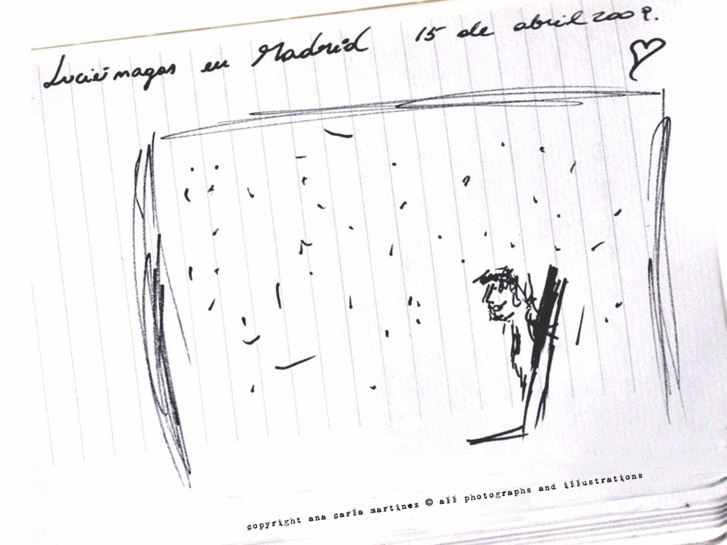 Luciérnagas en Madrid 15 de abril 2009.
copyright ana carla martinez © all photographs and illustrations